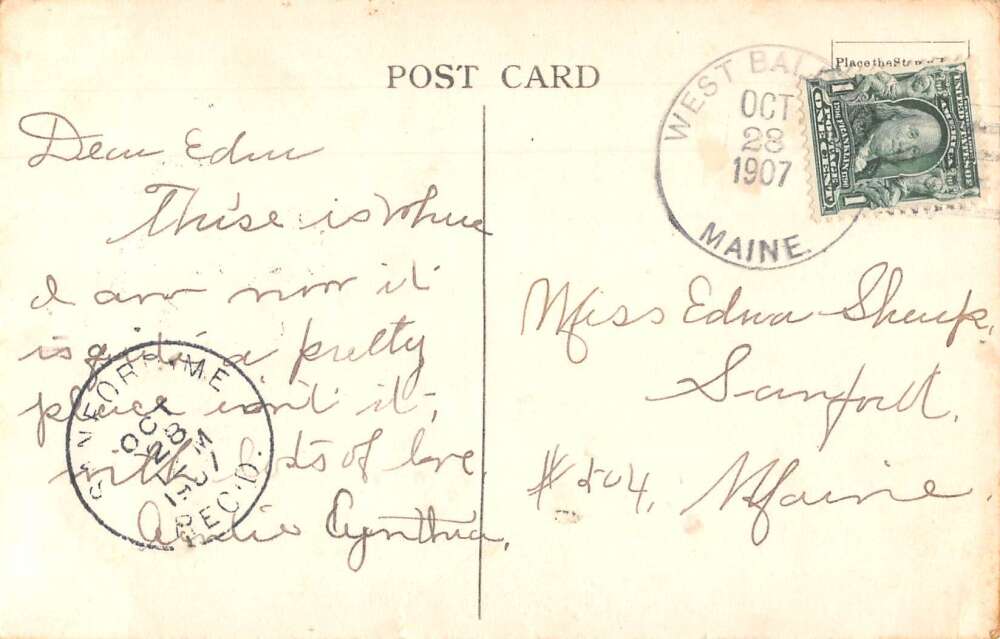 POST CARD
Place the
WEST BAL
OCT
28
1907
MAINE.
UNITED STATES OF AMERICA
POSTAGE
ONE CENT
1 1
Dear Edna
This'e is where
I am now it
is quite a pretty
place isn't it,
with lots of love
Cynthia,
SANFORD, ME
OCT
28
M
1907
REC'D.
Miss Edna
Sanford,
#204, Maine.